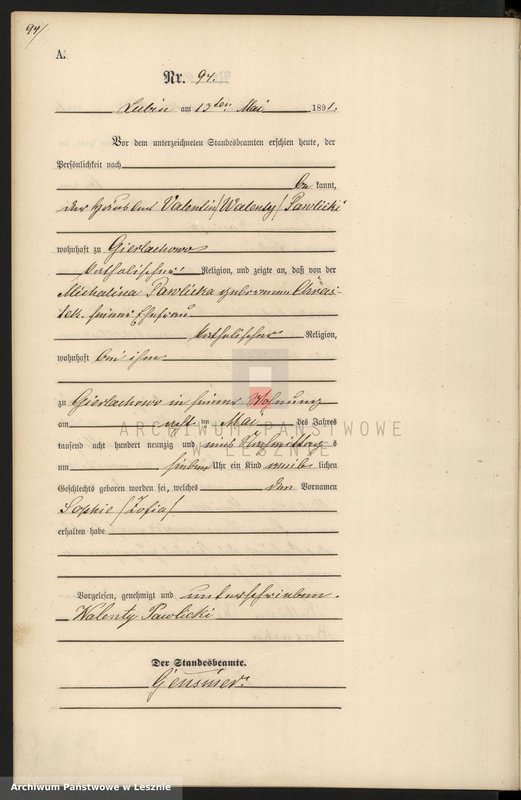 94/
A.
Nr. 94.
Lubin am 13ten Mai 1891.
Vor dem unterzeichneten Standesbeamten erschien heute, der
Persönlichkeit nach
be kannt,
der Häusler Valentin /Walenty/ Pawlicki
wohnhaft zu Gierlachowo
katholischer Religion, und zeigte an, daß von der
Michalina Pawlicka geborenen Chras-
tek, seiner Ehefrau
katholischer Religion,
wohnhaft bei ihm
zu Gierlachowo in seiner Wohnung
am acht ten Mai des Jahres
tausend acht hundert neunzig und eins Nachmittag s
um sieben Uhr ein Kind weib lichen
Geschlechts geboren worden sei, welches den Vornamen
Sophie /Zofia/
erhalten habe
Vorgelesen, genehmigt und unterschrieben.
Walenty Pawlicki
Der Standesbeamte.
Gensmer
ARCHIWUM PAŃSTWOWE
W LESZNIE
Archiwum Państwowe w Lesznie